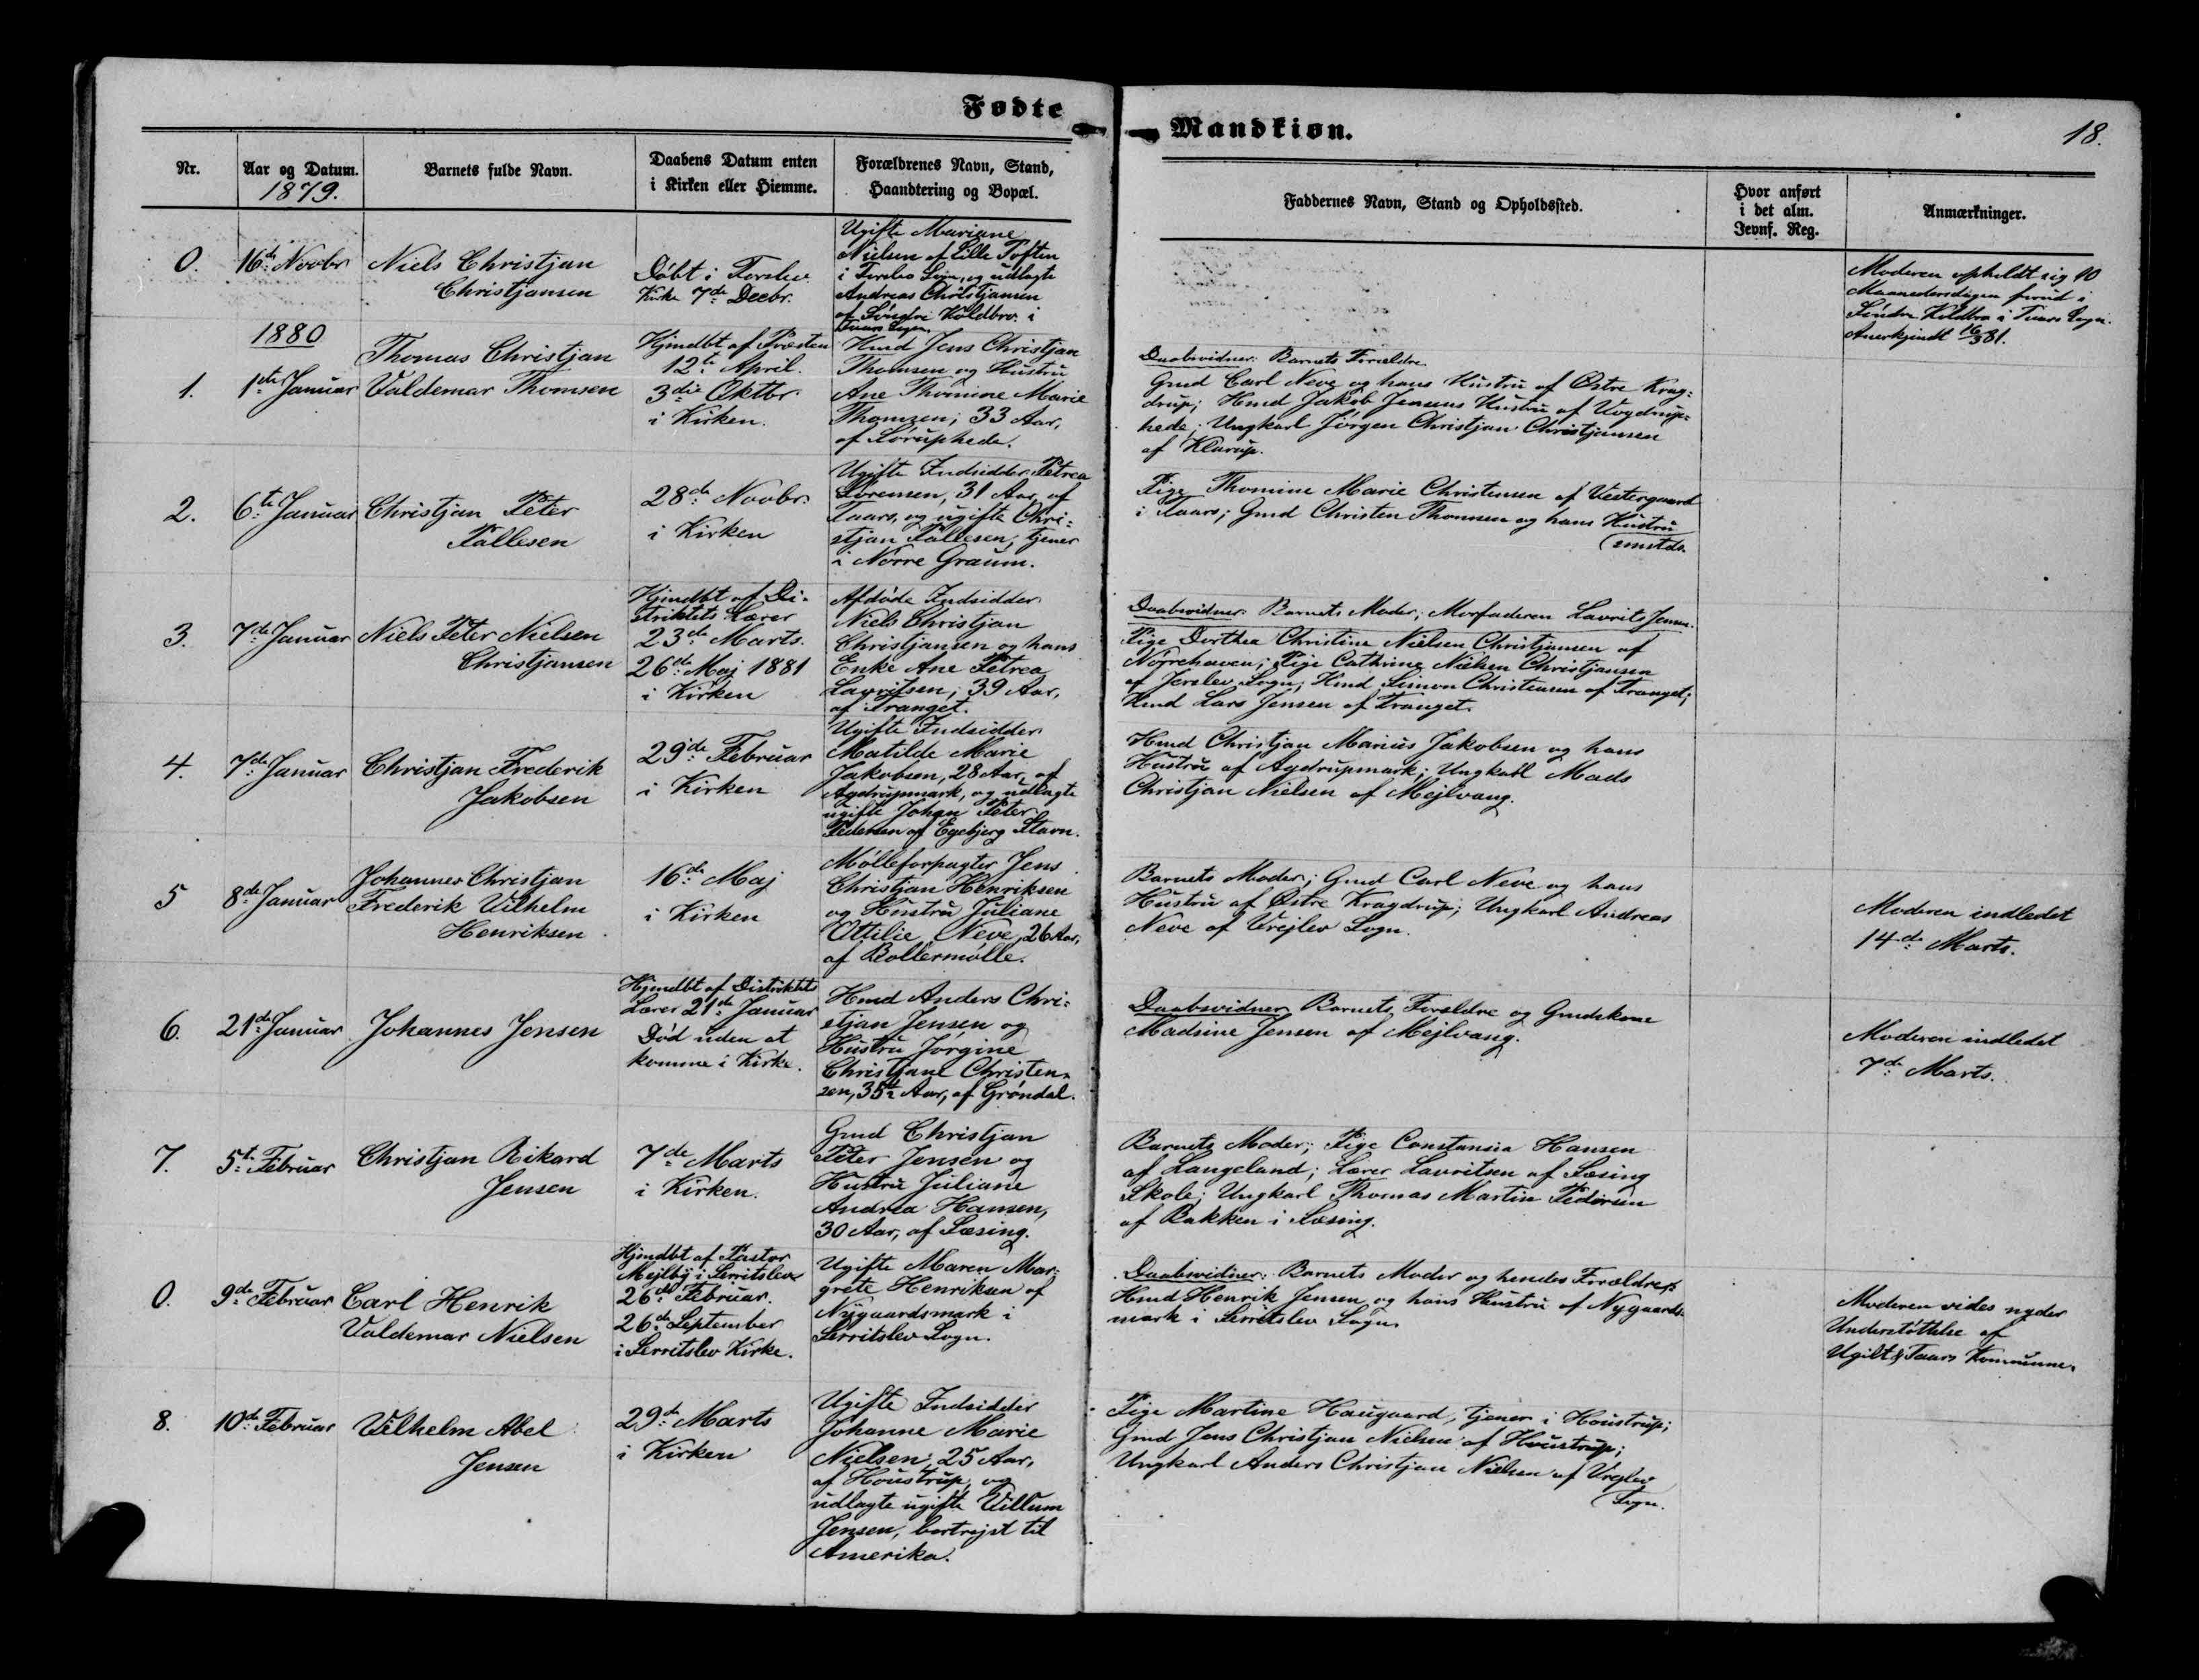 Fødte
Mandkiøn.
18.
Nr.
Aar og Datum.
1879.
Barnets fulde Navn.
Daabens Datum enten
i Kirken eller Hiemme.
Forældrenes Navn, Stand,
Haandtering og Bopæl.
Faddernes Navn, Stand og Opholdssted.
Hvor anført
i det alm.
Jevnf. Reg.
Anmærkninger.
0.
16de Novbr
Niels Christjan
Christjansen
Døbt i
Kirke 7de Decbr.
Ugifte Mariane
Nielsen af Lille Toften
i Sogn, og udlagte
Andreas Christjansen
af Søndre Koldbro i
Taars Sogn.
Moderen opholdt sig 10
Maanedersdagen forud i
Søndre Koldbro i Taars Sogn.
Anerkjendt 16/3 81.
1880
1.
1ste Januar
Thomas Christjan
Valdemar Thomsen
Hjmdbt af Præsten
12te April.
3die Oktbr.
i Kirken.
Hmd Jens Christjan
Thomsen og Hustru
Ane Thomine Marie
Thomsen; 33 Aar,
af Søruphede.
Daabsvidner: Barnets Forældre
Gmd Carl Neve og hans Hustru af Østre Krag-
drup; Hmd Jakob Jensens Hustru af
hede; Ungkarl Jørgen Christjan Christjansen
af Klarup.
2.
6te Januar
Christjan Peter
Pallesen
28de Novbr.
i Kirken
Ugifte Indsidder Petrea
Sørensen, 31 Aar, af
Taars, og ugifte Chri-
stjan Pallesen, tjener
i Nørre Graum.
Pige Thomine Marie Christensen af Vestergaard
i Taars; Gmd Christen Thomsen og hans Hustru
smstds.
3.
7de Januar
Niels Peter Nielsen
Christjansen
Hjmdbt af Di-
striktets Lærer
23de Marts.
26de Maj 1881
i Kirken
Afdøde Indsidder
Niels Christjan
Christjansen og hans
Enke Ane Petrea
Lauritsen, 39 Aar,
af Tranget.
Daabsvidner: Barnets Moder; Morfaderen Lavrits Jensen.
Pige Dorthea Christine Nielsen Christjansen af
Nørrehaven; Pige Cathrine Nielsen Christjansen
af Jerslev Sogn; Hmd Simon Christensen af Tranget;
Hmd Lars Jensen af Tranget.
4.
7de Januar
Christjan Frederik
Jakobsen
29de Februar
i Kirken
Ugifte Indsidder
Matilde Marie
Jakobsen, 28 Aar, af
Agdrupmark, og udlagte
ugifte Johan Peter
Pedersen af Egebjerg Stavn.
Hmd Christjan Marius Jakobsen og hans
Hustru af Agdrupmark; Ungkarl Mads
Christjan Nielsen af Mejlvang.
5
8de Januar
Johannes Christjan
Frederik Vilhelm
Henriksen
16de Maj
i Kirken
Mølleforpagter Jens
Christjan Henriksen
og Hustru Juliane
Ottilie Neve, 26 Aar,
af Bollermølle.
Barnets Moder; Gmd Carl Neve og hans
Hustru af Østre Kragdrup; Ungkarl Andreas
Neve af Vrejlev Sogn.
Moderen indledet
14de Marts.
6.
21de Januar
Johannes Jensen
Hjmdbt af Distriktets
Lærer 21de Januar
Død uden at
komme i Kirke.
Hmd Anders Chri-
stjan Jensen og
Hustru Jørgine
Christjane Christen-
sen, 35½ Aar, af Grøndal.
Daabsvidner Barnets Forældre og Gmdskone
Madsine Jensen af Mejlvang.
Moderen indledet
7de Marts.
7.
5te Februar
Christjan Rikard
Jensen
7de Marts
i Kirken.
Gmd Christjan
Peter Jensen og
Hustru Juliane
Andrea Hansen,
30 Aar, af Sæsing.
Barnets Moder; Pige Constansia Hansen
af Langeland; Lærer Lavritsen af Sæsing
Skole; Ungkarl Thomas Martin Pedersen
af Bakken i Sæsing.
0.
9de Februar
Carl Henrik
Valdemar Nielsen
Hjmdbt af Pastor
Mejlby i Serritslev
26de Februar.
26de September
i Serritslev Kirke.
Ugifte Maren Mar-
grete Henriksen af
Nygaardsmark i
Serritslev Sogn.
Daabsvidner: Barnets Moder og hendes Forældre:
Hmd Henrik Jensen og hans Hustru af Nygaards-
mark i Serritslev Sogn.
Moderen vides nyder
Understøttelse af
Ugilt & Taars Kommune.
8.
10de Februar
Vilhelm Abel
Jensen
29de Marts
i Kirken
Ugifte Indsidder
Johanne Marie
Nielsen, 25 Aar,
af Houstrup, og
udlagte ugifte Villum
Jensen, bortrejst til
Amerika.
Pige Martine Haugaard, tjener i Houstrup;
Gmd Jens Christjan Nielsen af Houstrup;
Ungkarl Anders Christjan Nielsen af Vrejlev
Sogn.